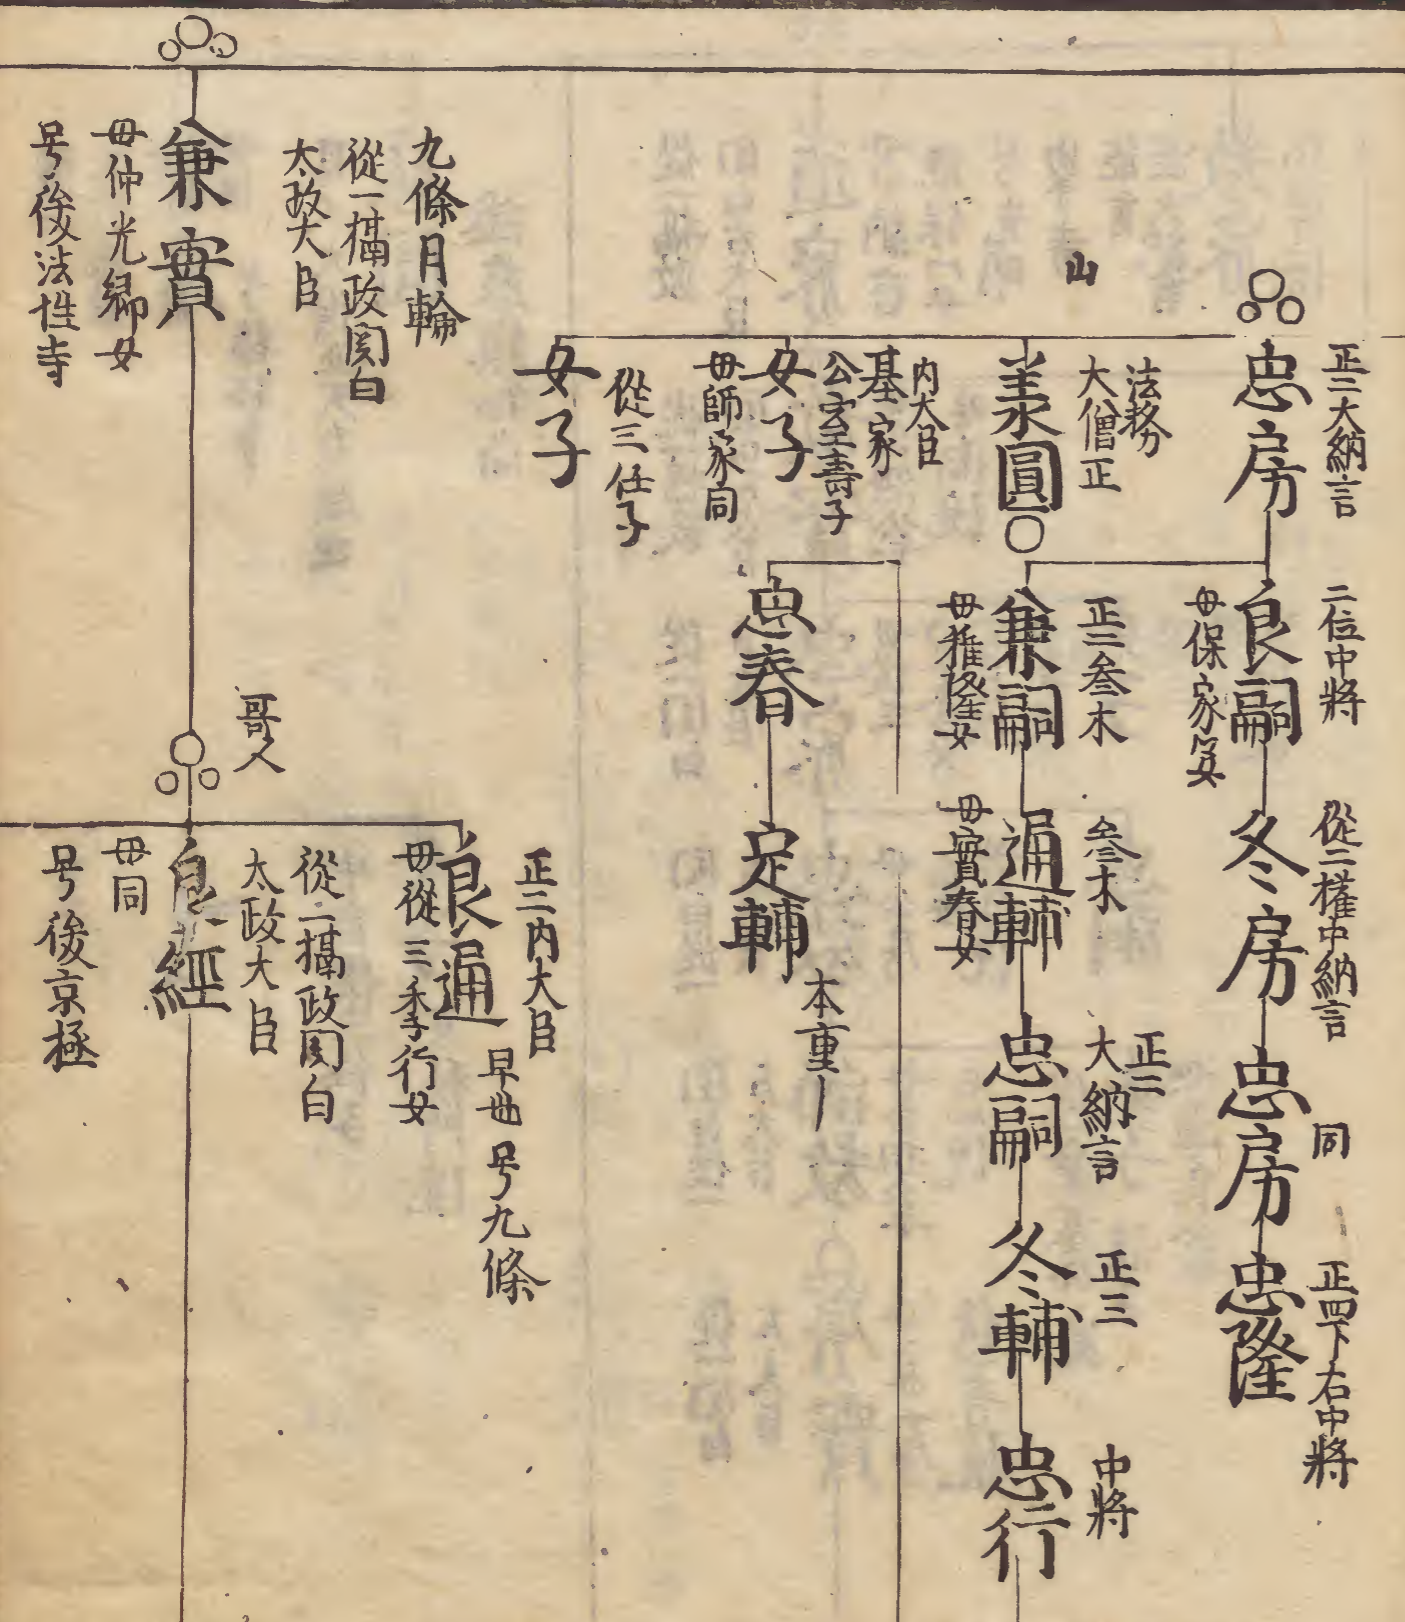 正二大納言
忠房
二位中將
良嗣
母保家女
從二權中納言
冬房
同
忠房
正四下右中將
忠隆
山
法務
大僧正
承圓
正二叅木
兼嗣
母雅隆女
叅木
通輔
母實春女
正二
大納言
忠嗣
正三
冬輔
中將
忠行
内大臣
基家
公室壽子
女子
母師家同
忠春
定輔
本重〡
從三任子
女子
九條月輪
從一攝政関白
太政大臣
兼實
母仲光卿女
号後法性寺
哥人
正二内大臣
良通
早世
号九條
母從三季行女
從一攝政関白
太政大臣
良經
母同
号後京極